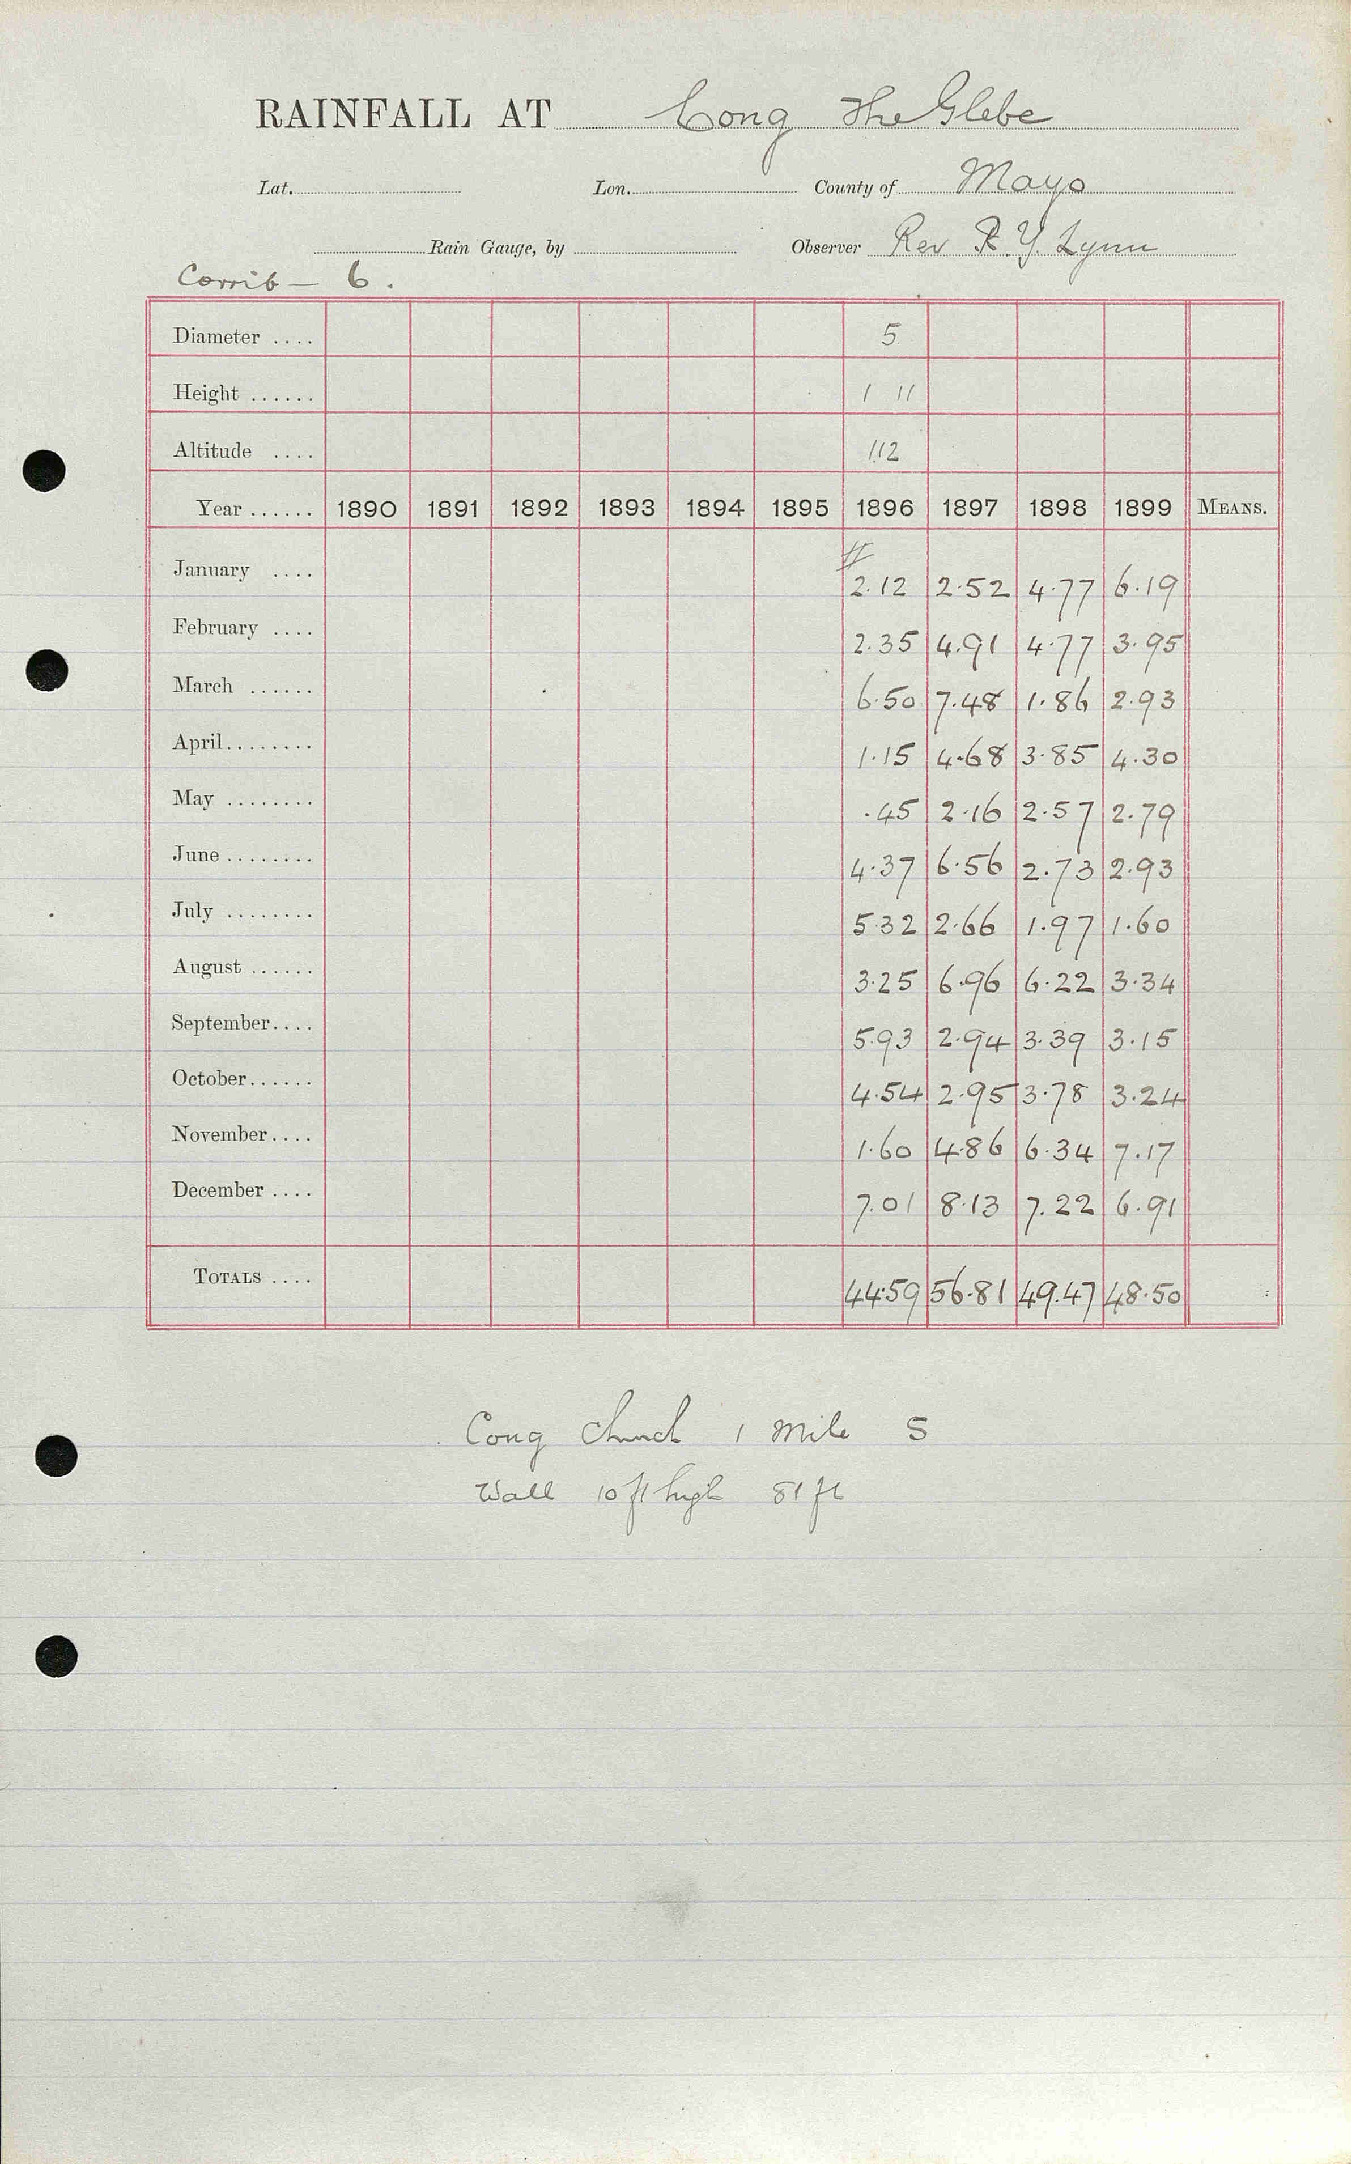 RAINFALL AT Cong The Glebe
Lat. Lon. County of Mayo
Rain Gauge, by Observer Rev R. Y. Lynn
Corrib — 6.
Diameter .... 5
Height ...... 1 11
Altitude .... 112
Year ...... 1890 1891 1892 1893 1894 1895 1896 1897 1898 1899 MEANS.
January .... # 2.12 2.52 4.77 6.19
February .... 2.35 4.91 4.77 3.95
March ...... 6.50 7.48 1.86 2.93
April........ 1.15 4.68 3.85 4.30
May ........ .45 2.16 2.57 2.79
June ........ 4.37 6.56 2.73 2.93
July ........ 5.32 2.66 1.97 1.60
August ...... 3.25 6.96 6.22 3.34
September.... 5.93 2.94 3.39 3.15
October...... 4.54 2.95 3.78 3.24
November.... 1.60 4.86 6.34 7.17
December .... 7.01 8.13 7.22 6.91
TOTALS .... 44.59 56.81 49.47 48.50
Cong Church 1 Mile S
Wall 10 ft high 81 ft